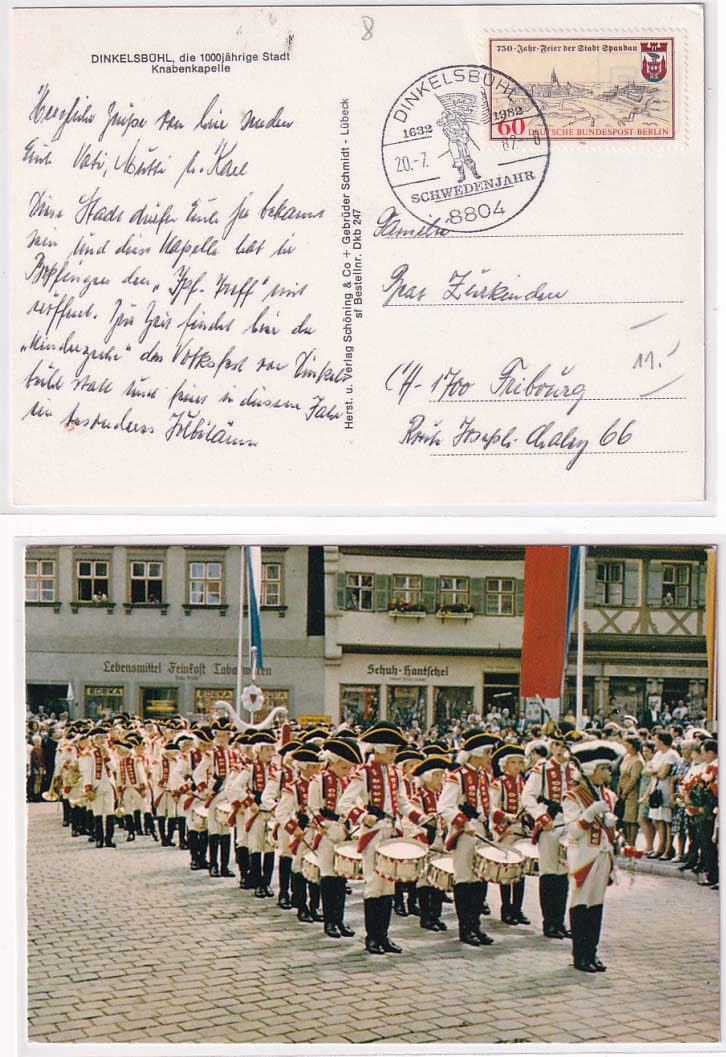 DINKELSBÜHL, die 1000jährige Stadt
Knabenkapelle
8
Herzliche Grüße von hier senden
Euch Vati, Mutti
Diese Stadt dürfte Euch ja bekannt
sein und diese Kapelle hat in
Bopfingen den „Ipf-Treff" mit
eröffent. Zur Zeit findet hier die
„Kinderzeche" das Volksfest von Dinkels-
bühl statt und feiert in diesem Jahr
ein besonderes Jubiläum
Herst. u. Verlag Schöning & Co + Gebrüder Schmidt - Lübeck
sf Bestellnr. Dkb 247
750-Jahr-Feier der Stadt Spandau
60 DEUTSCHE BUNDESPOST BERLIN
DINKELSBÜHL
1632 1982
20.-7. 82.-8
SCHWEDENJAHR
8804
Familie
Zurkinden
11.-
CH-1700 Fribourg
Route Joseph-Chaley 66
Lebensmittel Feinkost Tabakwaren
EDEKA EDEKA
Schuh-Hantschel